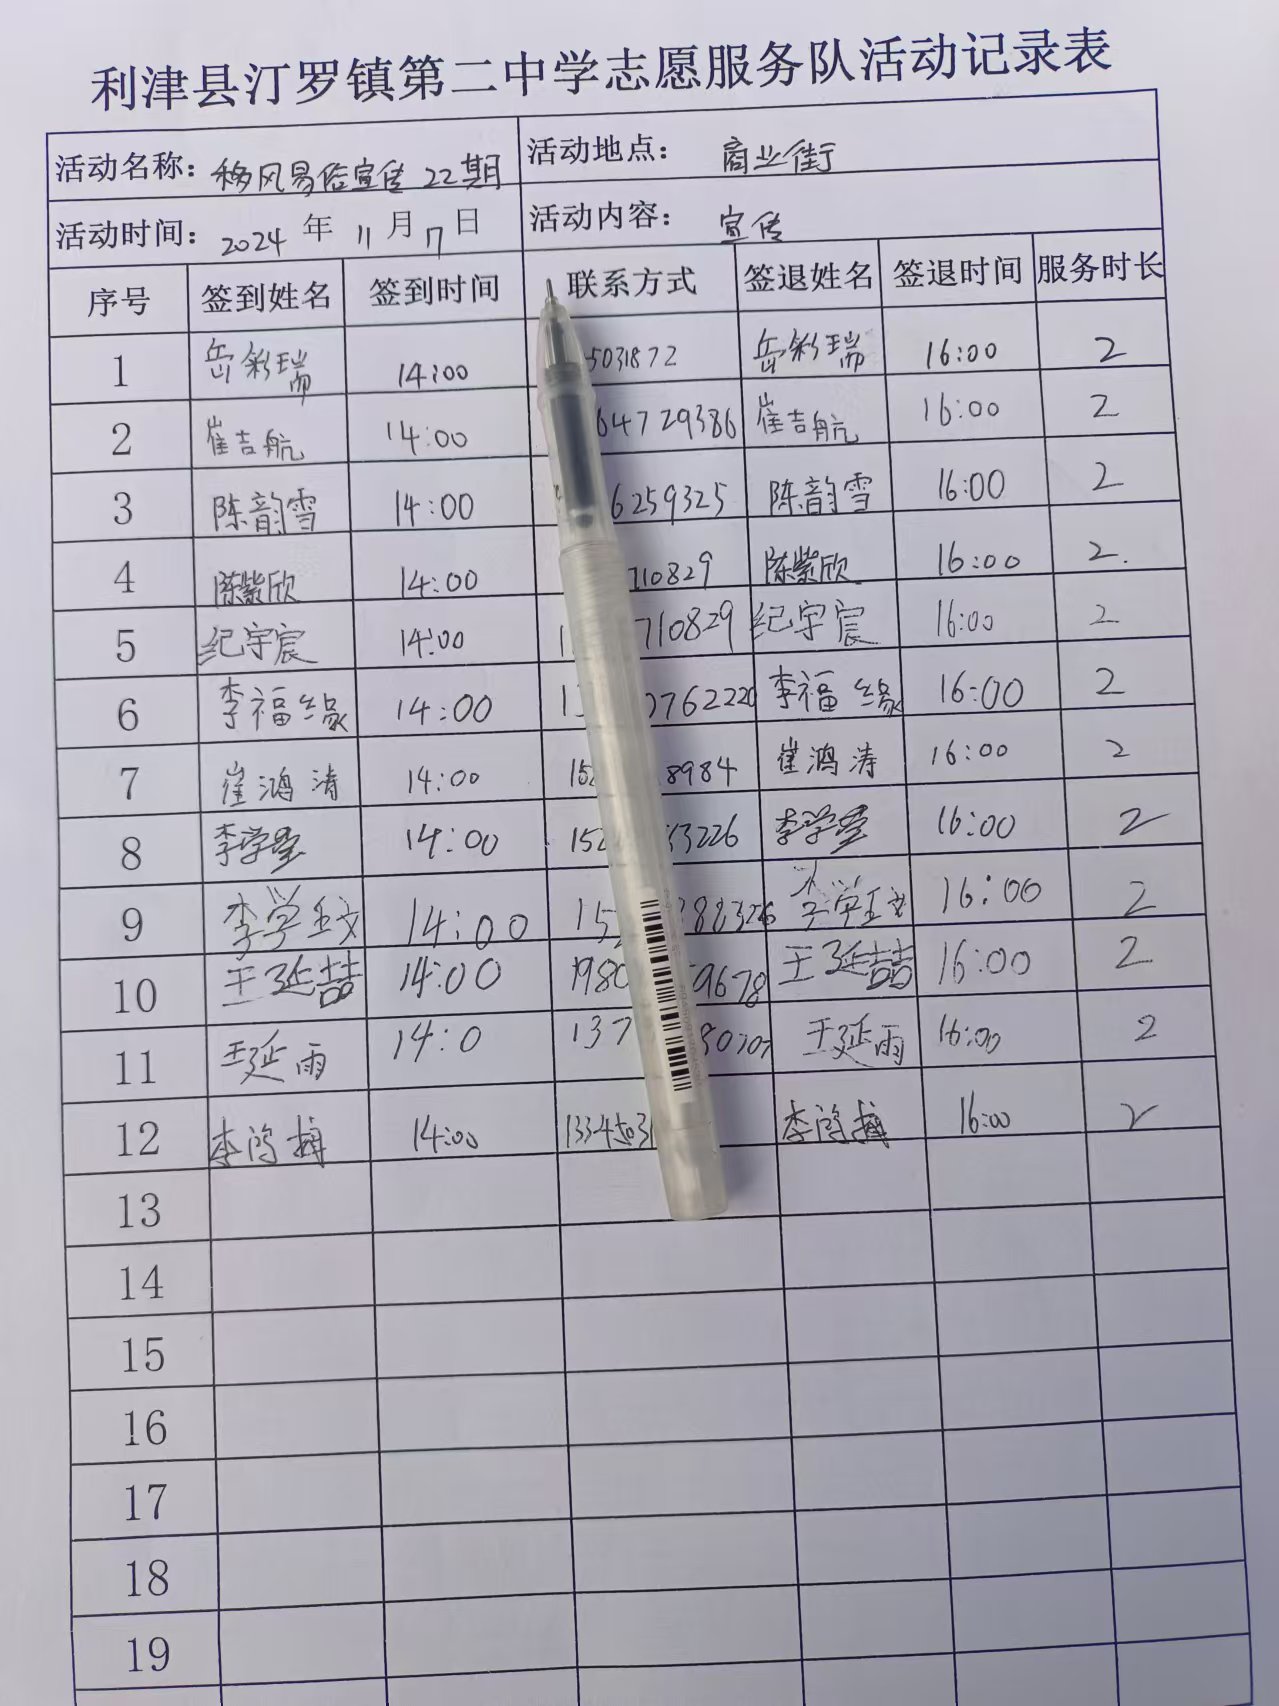 利津县汀罗镇第二中学志愿服务队活动记录表
活动名称： 移风易俗宣传 22期 活动地点： 商业街
活动时间： 2024 年 11 月 17 日 活动内容： 宣传
序号 签到姓名 签到时间 联系方式 签退姓名 签退时间 服务时长
1 岳彩瑞 14:00 5031872 岳彩瑞 16:00 2
2 崔吉航 14:00 64729386 崔吉航 16:00 2
3 陈韵雪 14:00 6259325 陈韵雪 16:00 2
4 陈紫欣 14:00 710829 陈紫欣 16:00 2.
5 纪宇宸 14:00 1 710829 纪宇宸 16:00 2
6 李福缘 14:00 1 762220 李福缘 16:00 2
7 崔鸿涛 14:00 15 8984 崔鸿涛 16:00 2
8 李学莹 14:00 152 53226 李学莹 16:00 2
9 李学 14:00 15 李学 16:00 2
10 王延喆 14:00 1980 9678 王延喆 16:00 2
11 王延雨 14:0 137 王延雨 16:00 2
12 李鸿搏 14:00 李鸿搏 16:00 2
13
14
15
16
17
18
19